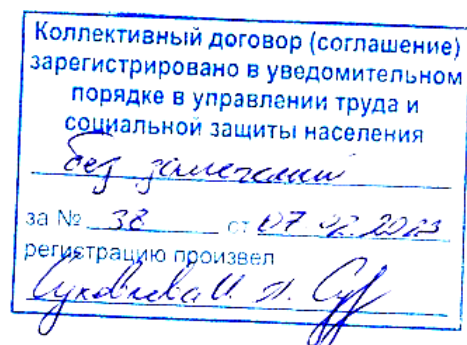 Коллективный договор (соглашение)
зарегистрировано в уведомительном
порядке в управлении труда и
социальной защиты населения
без замечаний
за № 38 от 07 02 2023
регистрацию произвел
И. П.